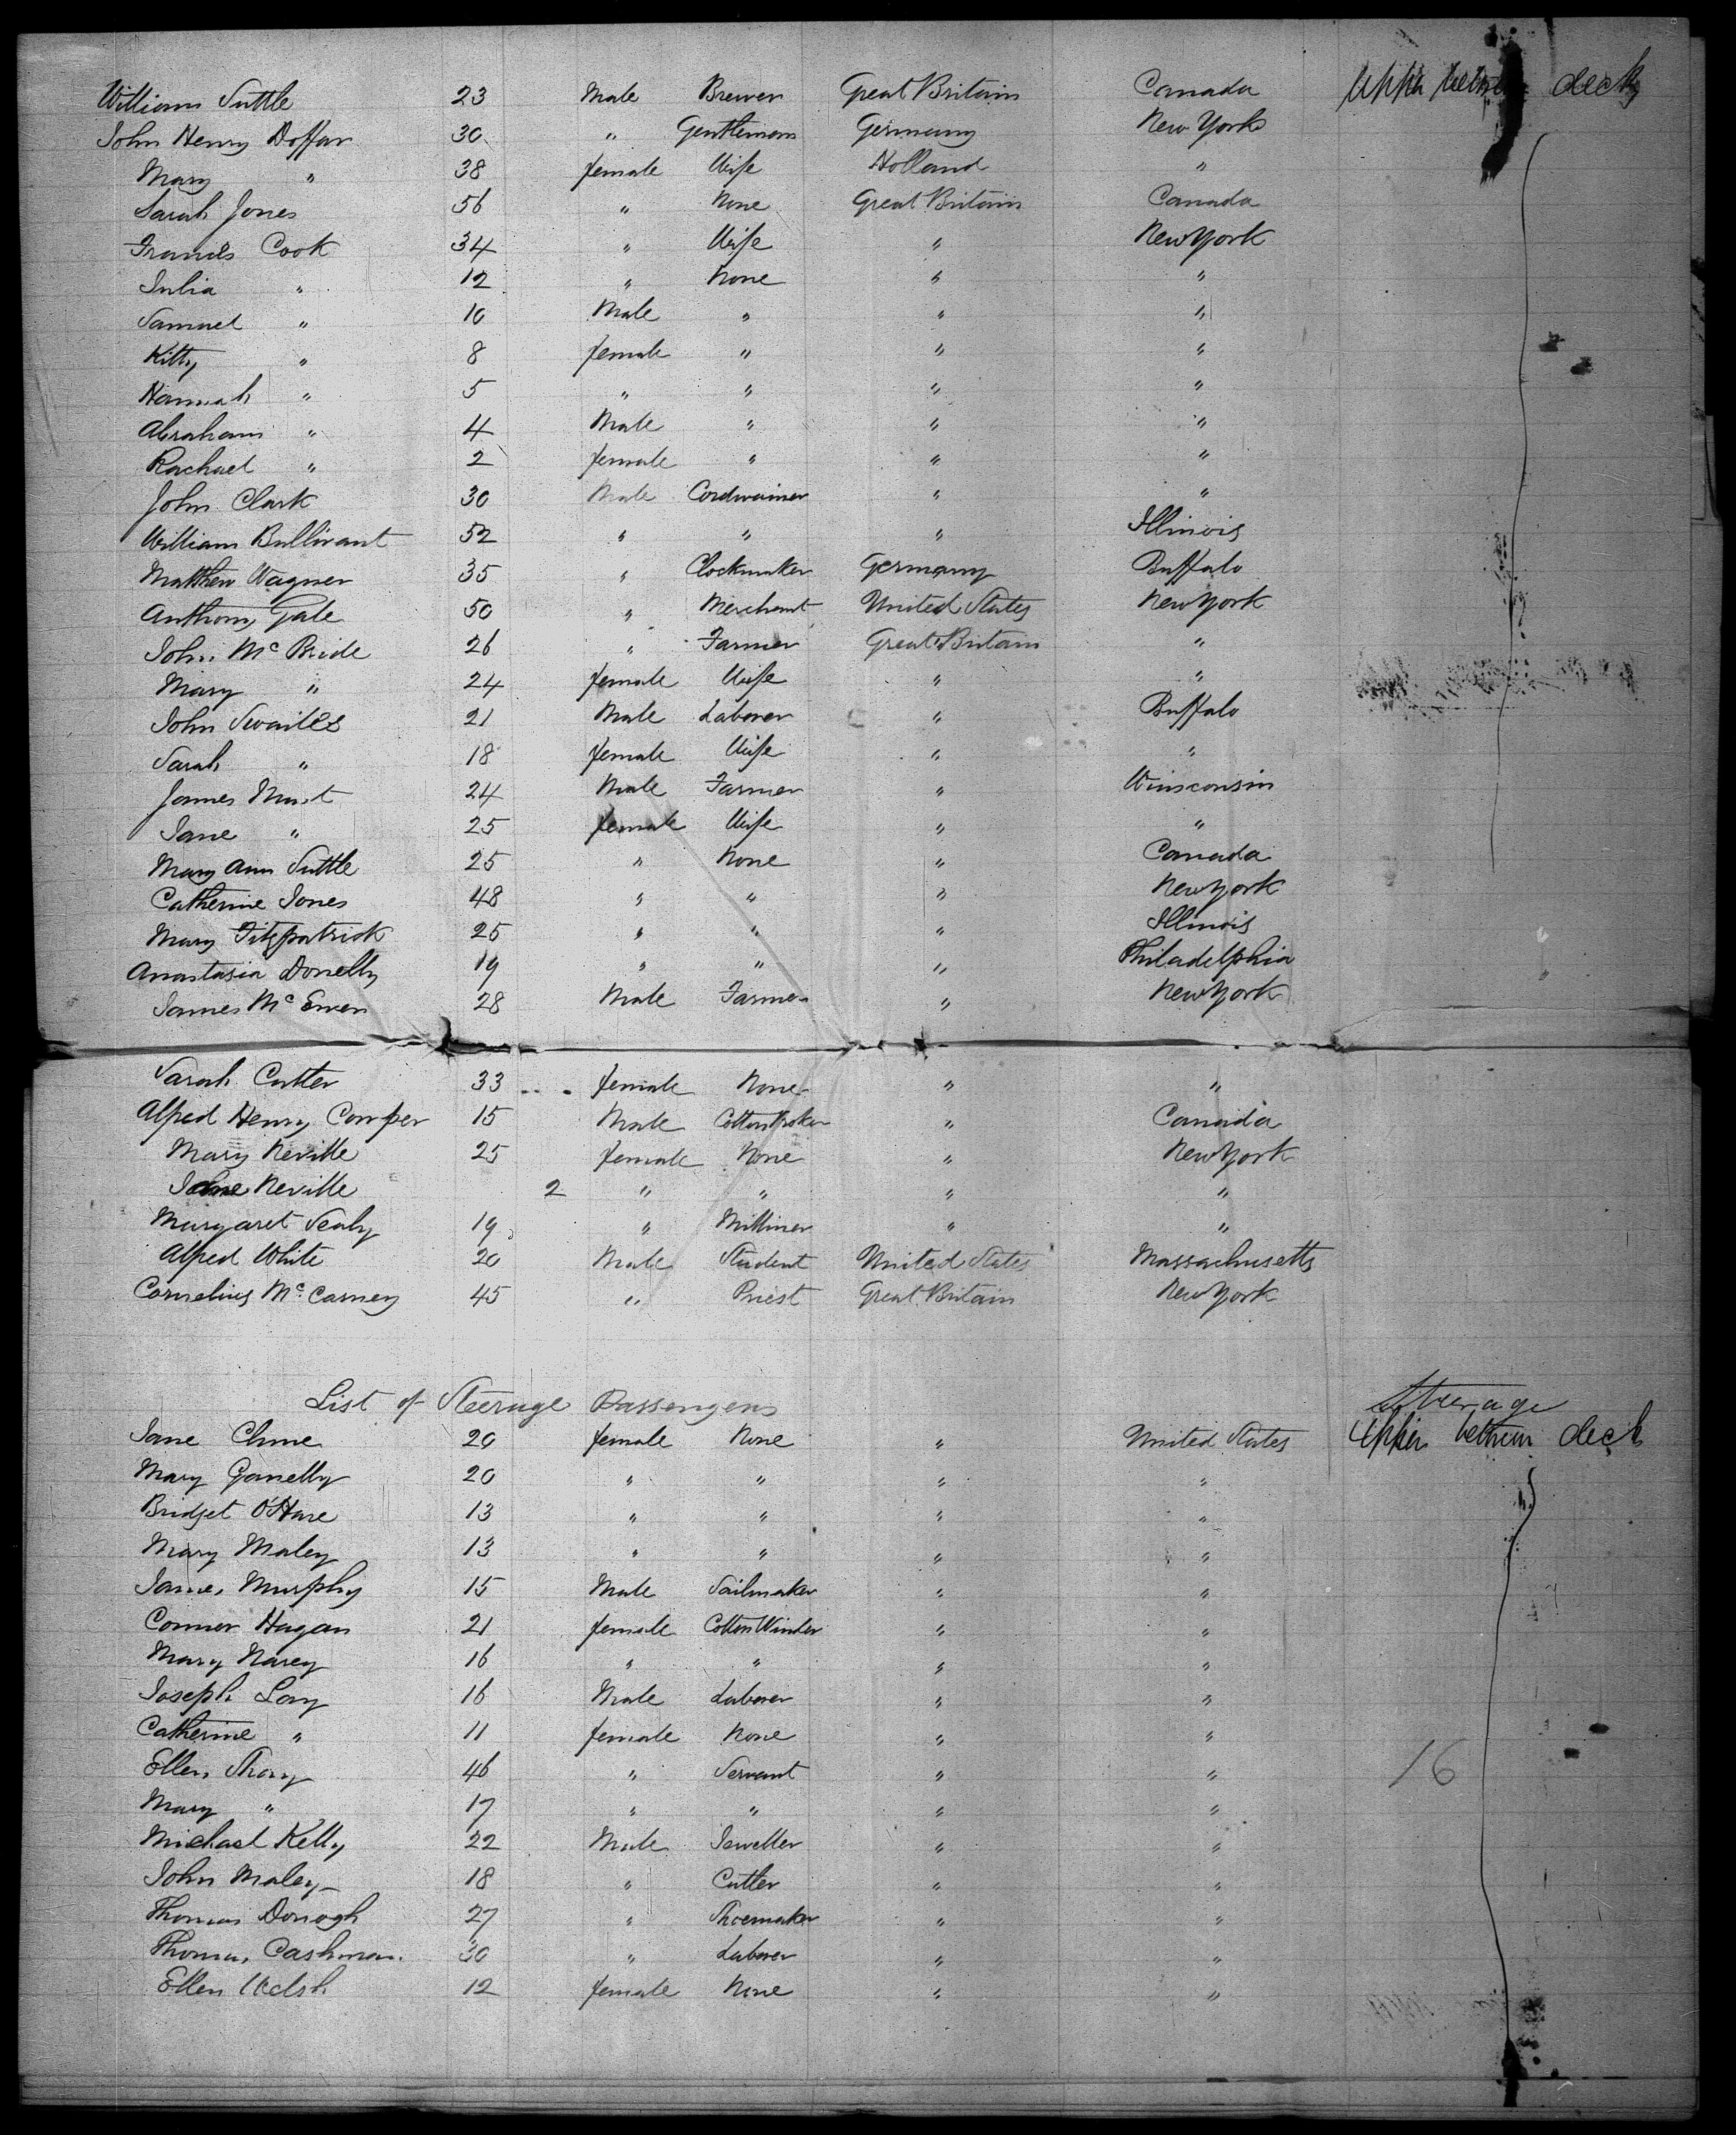 William Suttle 23 Male Brewer Great Britain Canada Upper between decks
John Henry Doffar 30 " Gentleman Germany New York
Mary " 38 female Wife Holland "
Sarah Jones 56 " None Great Britain Canada
Francis Cook 34 " Wife " New York
Julia " 12 " None " "
Samuel " 10 Male " " "
Kitty " 8 female " " "
Hannah " 5 " " " "
Abraham " 4 Male " " "
Rachael " 2 female " " "
John Clark 30 Male Cordwainer " "
William Bullivant 52 " " " Illinois
Matthew Wagner 35 " Clockmaker Germany Buffalo
Anthony Gale 50 " Merchant United States New York
John McBride 26 " Farmer Great Britain "
Mary " 24 female Wife " "
John Swailes 21 Male Laborer " Buffalo
Sarah " 18 female Wife " "
James Must 24 Male Farmer " Winsconsin
Jane " 25 female Wife " "
Mary Ann Suttle 25 " None " Canada
Catherine Jones 48 " " " New York
Mary Fitzpatrick 25 " " " Illinois
Anastasia Donelly 19 " " " Philadelphia
James McEwen 28 Male Farmer " New York
Sarah Cutter 33 female None " "
Alfred Henry Cowper 15 Male Cotton Broker " Canada
Mary Neville 25 female None " New York
Jane Neville 2 " " " "
Margaret Sealy 19 " Milliner " "
Alfred White 20 Male Student United States Massachusetts
Cornelius McCarney 45 " Priest Great Britain New York
List of Steerage Passengers Steerage
Jane Clune 20 female None " United States Upper between deck
Mary Ganelly 20 " " " "
Bridget O'Hare 13 " " " "
Mary Maley 13 " " " "
James Murphy 15 Male Sailmaker " "
Conner Hagan 21 female Cotton Winder " "
Mary Narey 16 " " " "
Joseph Lony 16 Male Laborer " "
Catherine " 11 female None " "
Ellen 46 " Servant " "
Mary " 17 " " " "
16
Michael Kelly 22 Male Jeweller " "
John Maley 18 " Cutler " "
Thomas Donogh 27 " Shoemaker " "
Thomas Cashman 30 " Laborer " "
Ellen Welsh 12 female None " "